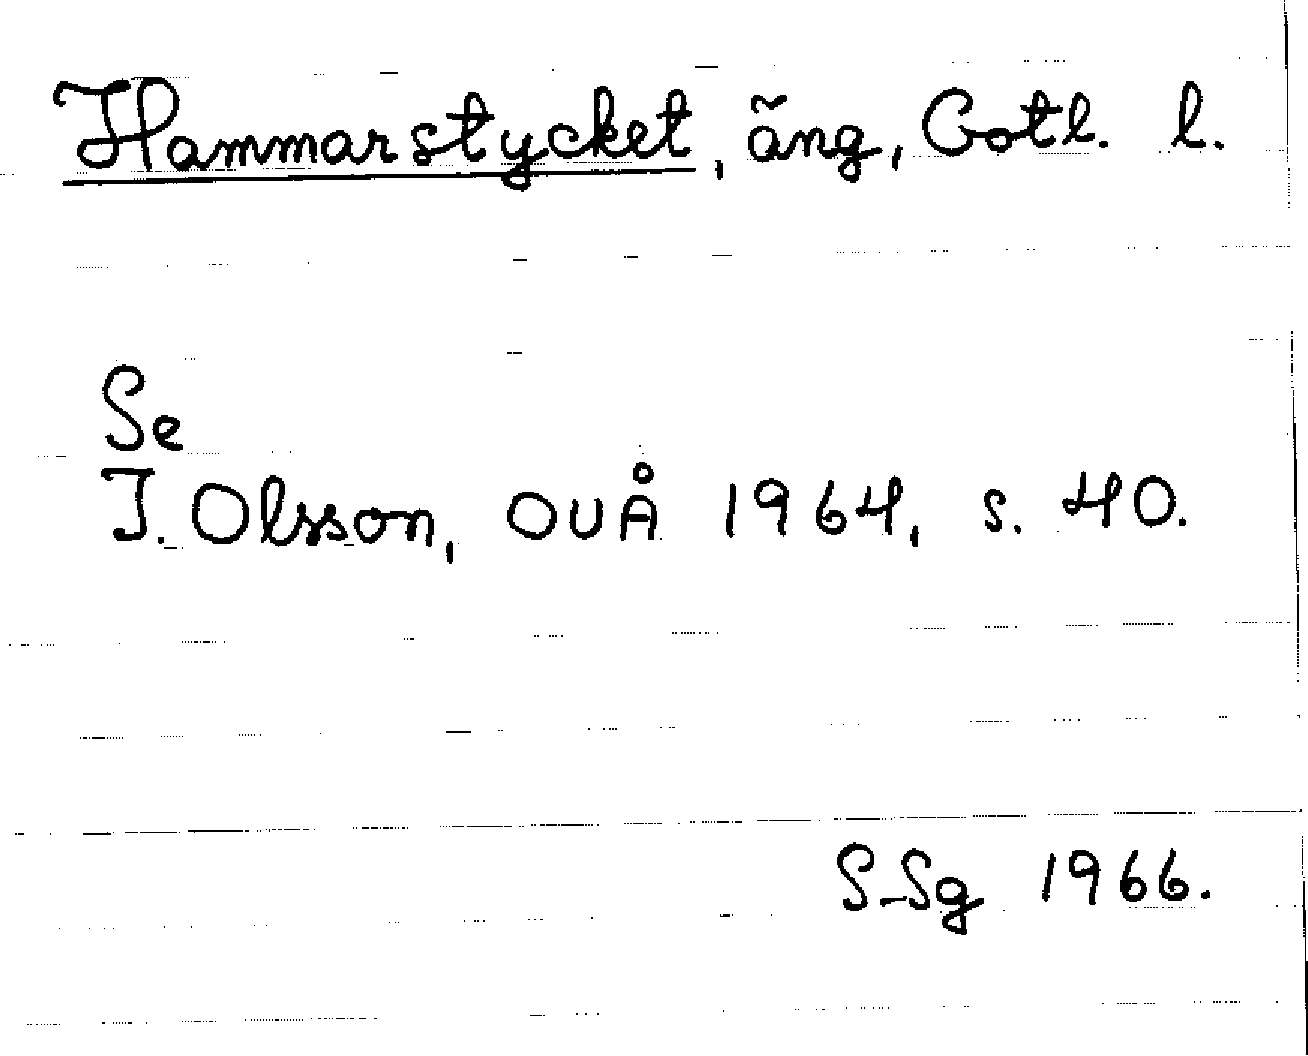 Hammarstycket, äng, Gotl. l.
Se
I. Olsson, OUÅ 1964, s. 40.
S-Sg 1966.